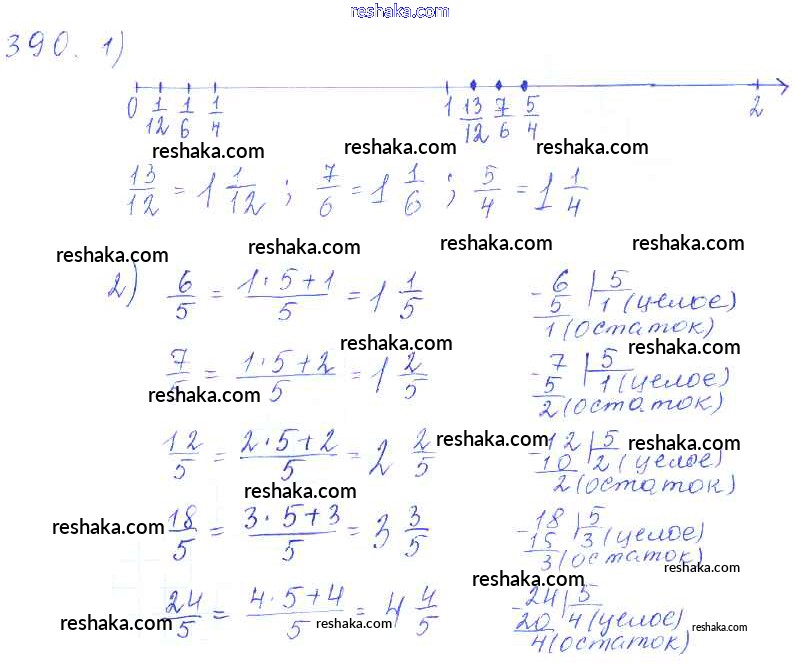 reshaka.com
390. 1)
0 1/12 1/6 1/4 1 13/12 7/6 5/4 2
reshaka.com reshaka.com reshaka.com
13/12 = 1 1/12 ; 7/6 = 1 1/6 ; 5/4 = 1 1/4
reshaka.com reshaka.com reshaka.com
2) 6/5 = (1·5+1)/5 = 1 1/5
- 6 | 5
5 1 (целое)
1 (остаток)
reshaka.com
7/5 = (1·5+2)/5 = 1 2/5
reshaka.com
- 7 | 5
5 1 (целое)
2 (остаток)
reshaka.com
12/5 = (2·5+2)/5 = 2 2/5
reshaka.com reshaka.com
- 12 | 5
10 2 (целое)
2 (остаток)
reshaka.com
reshaka.com
18/5 = (3·5+3)/5 = 3 3/5
- 18 | 5
15 3 (целое)
3 (остаток)
reshaka.com
reshaka.com
24/5 = (4·5+4)/5 = 4 4/5
reshaka.com reshaka.com
- 24 | 5
20 4 (целое)
4 (остаток)
reshaka.com